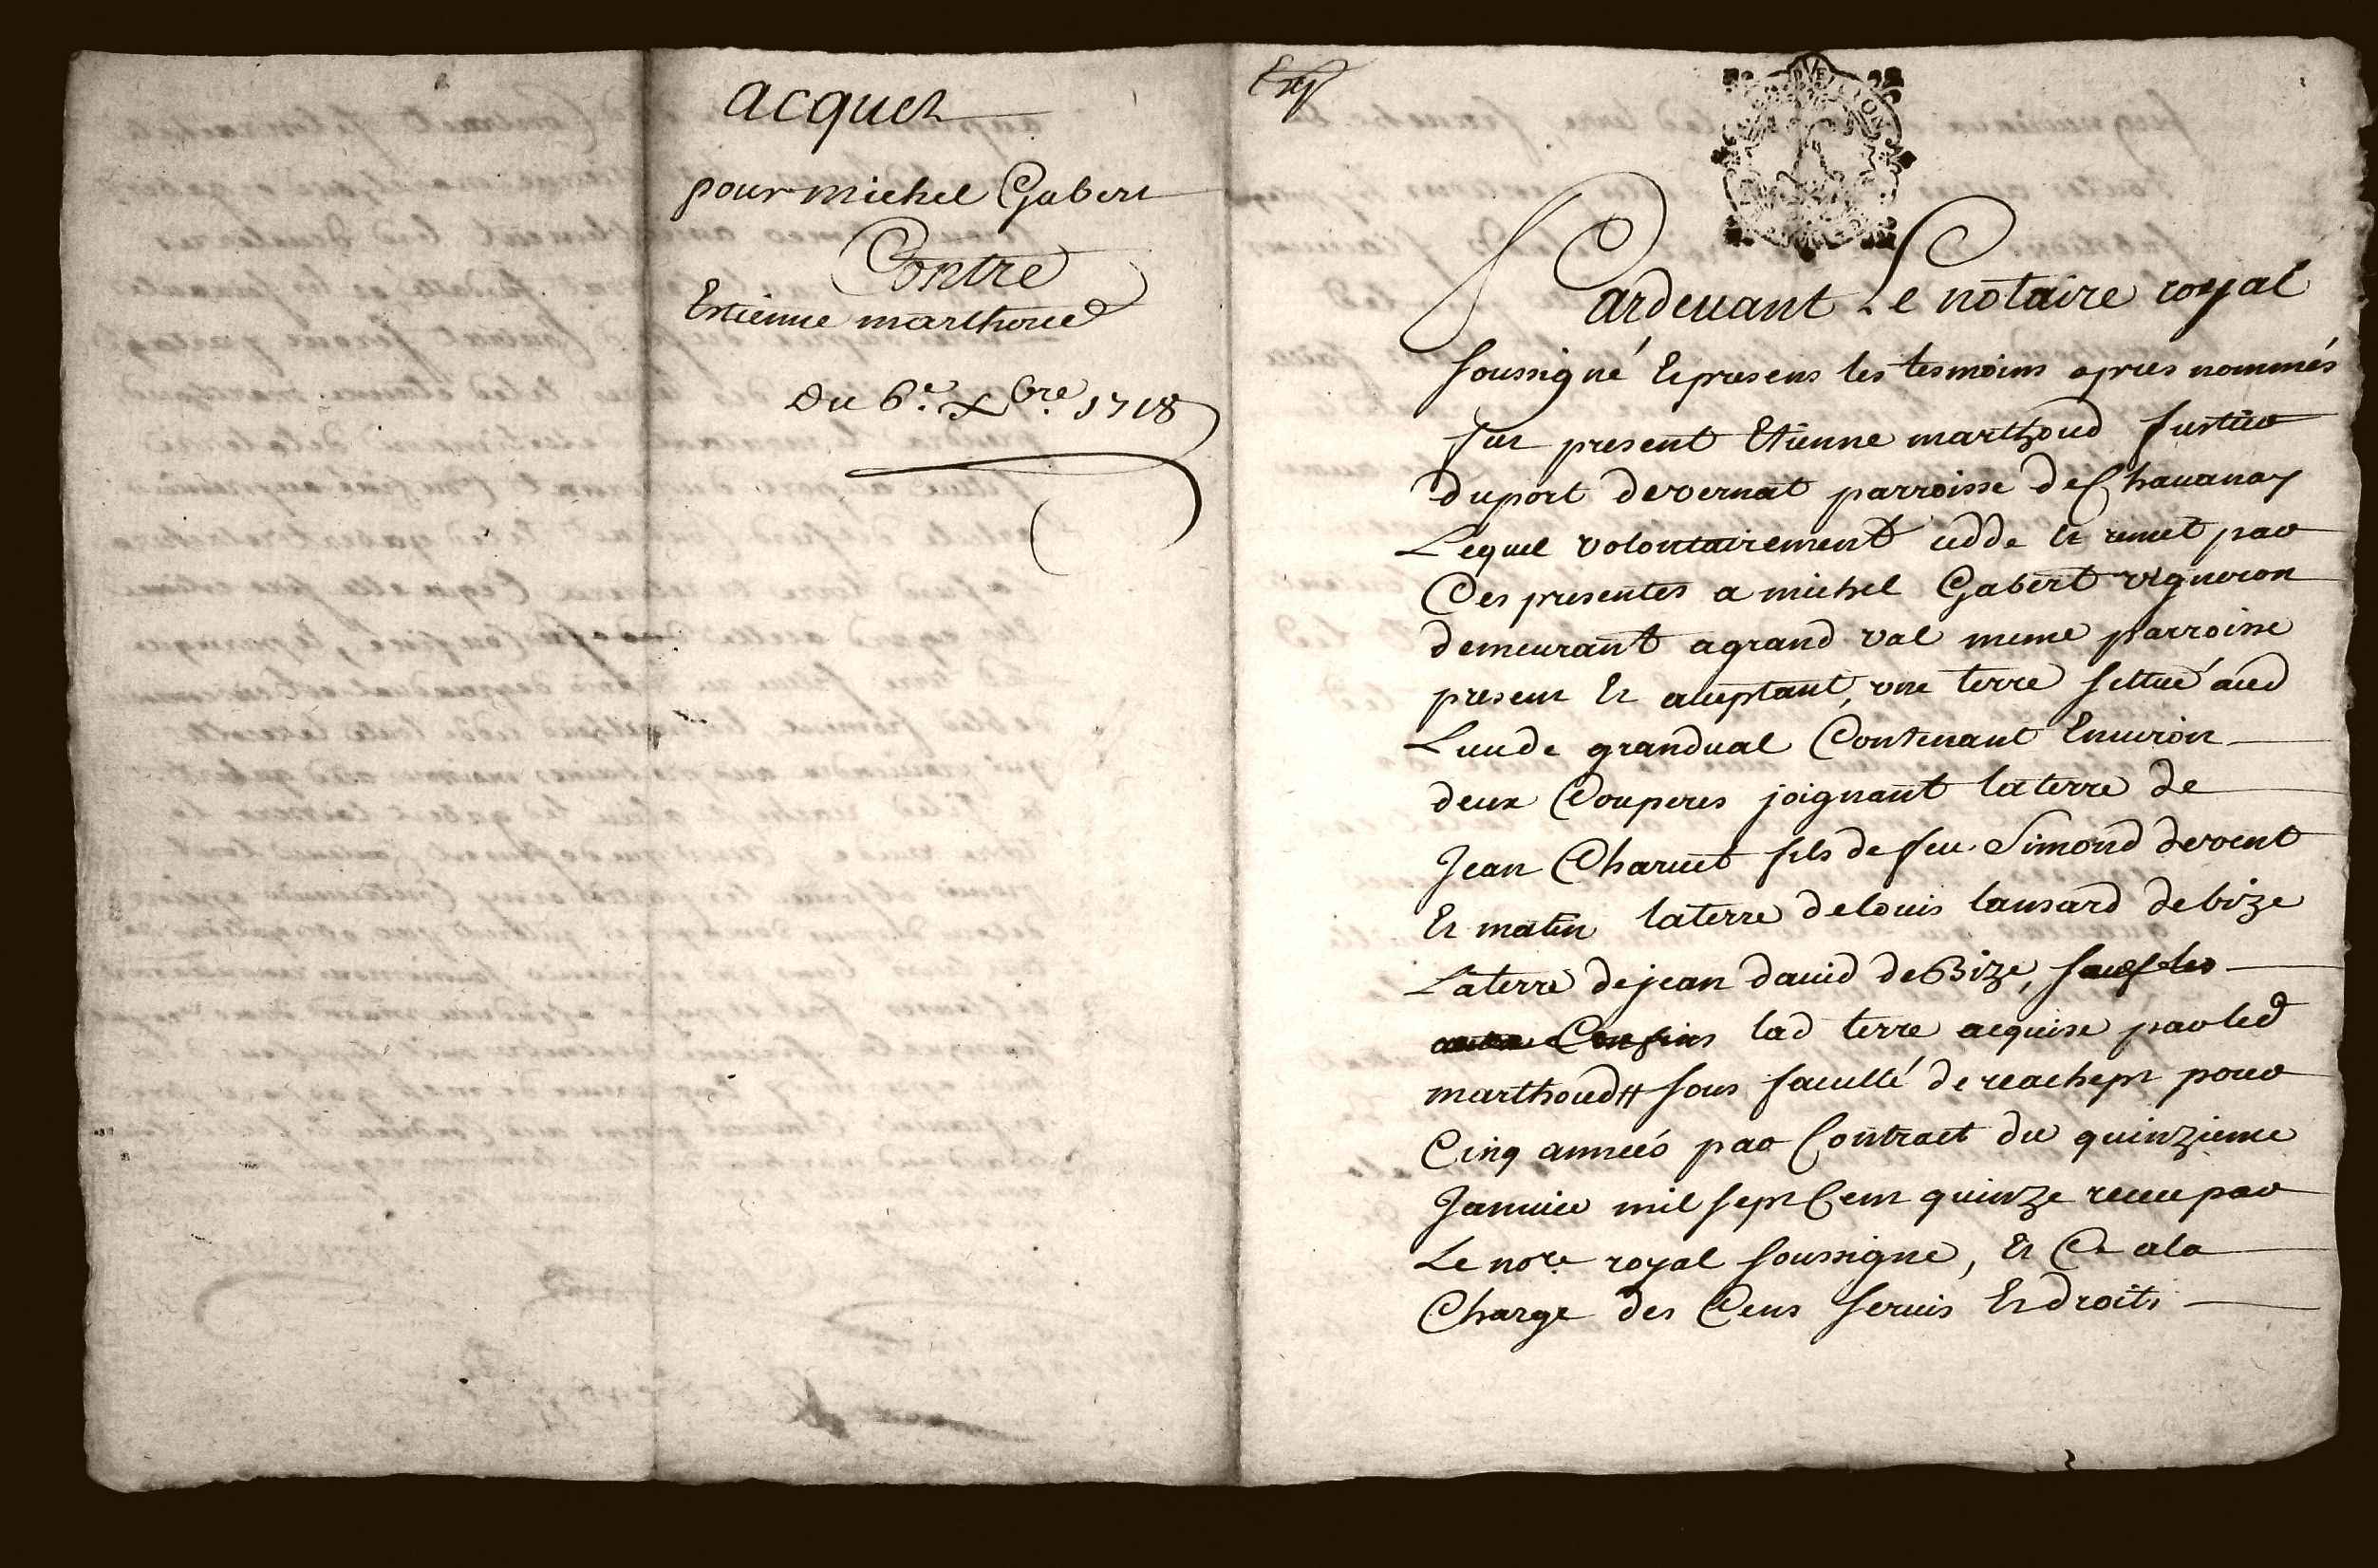 acquet
pour michel Gabert
Contre
Estienne marthoud
Du 6.e Xbre. 1718
Exp
Pardeuant Le notaire royal
soussigné Et presens les tesmoins apres nommés
fut present Etienne marthoud
du port de vernat parroisse de Chauanay
Lequel volontairement cedde Et remet par
Ces presentes a michel Gabert vigneron
demeurant a grand val meme parroisse
present Et acceptant, vne terre scittué aud
Lieu de grandual Contenant Enuiron
deux Couperes joignant la terre de
Jean Charuet fils de feu Simond de vent
Et matin la terre de louis lansard de bize
La terre de jean dauid de Bize, sauf les
Confins lad terre acquise par led
marthoud # sous faculté de reachept pour
Cinq années par Contract du quinzieme
Januier mil sept Cent quinze receu par
Le nore royal soussigne, Et Ce a la
Charge des Cens seruis Et droits